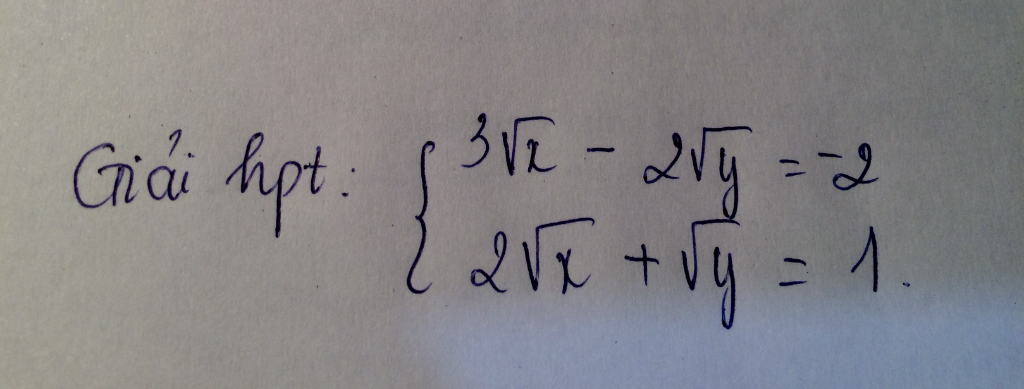 Giải hpt: { 3√x - 2√y = -2
2√x + √y = 1.